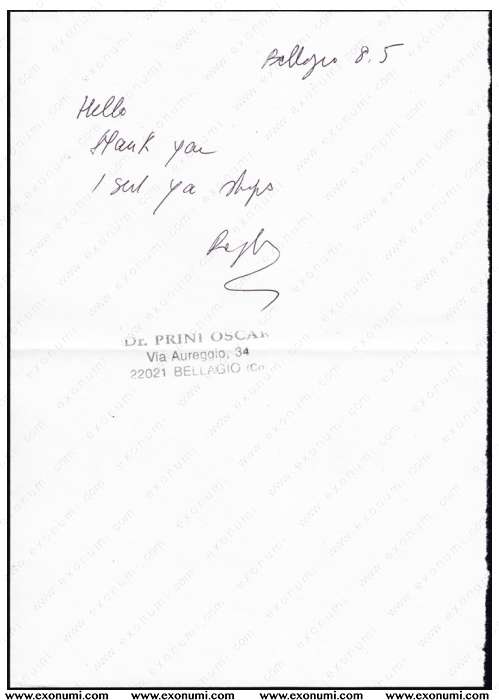 Bellagio 8.5
Hello
thank you
I send ya strips
DR. PRINI OSCAR
Via Aureggio, 34
22021 BELLAGIO (Co
www.exonumi.com www.exonumi.com www.exonumi.com www.exonumi.com